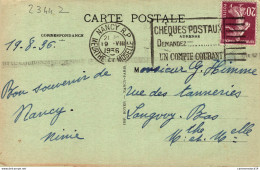 23442
CARTE POSTALE
CORRESPONDANCE
ADRESSE
NANCY R.P.
19 -VIII
1936
MEURTHE
MOSELLE
CHÈQUES POSTAUX
DEMANDEZ
UN COMPTE COURANT
20c
19.8.36.
Bon souvenir de
Nancy.
Mimie
Monsieur G. Himme
rue des Tanneries
Longwy-Bas
Mthe et Melle